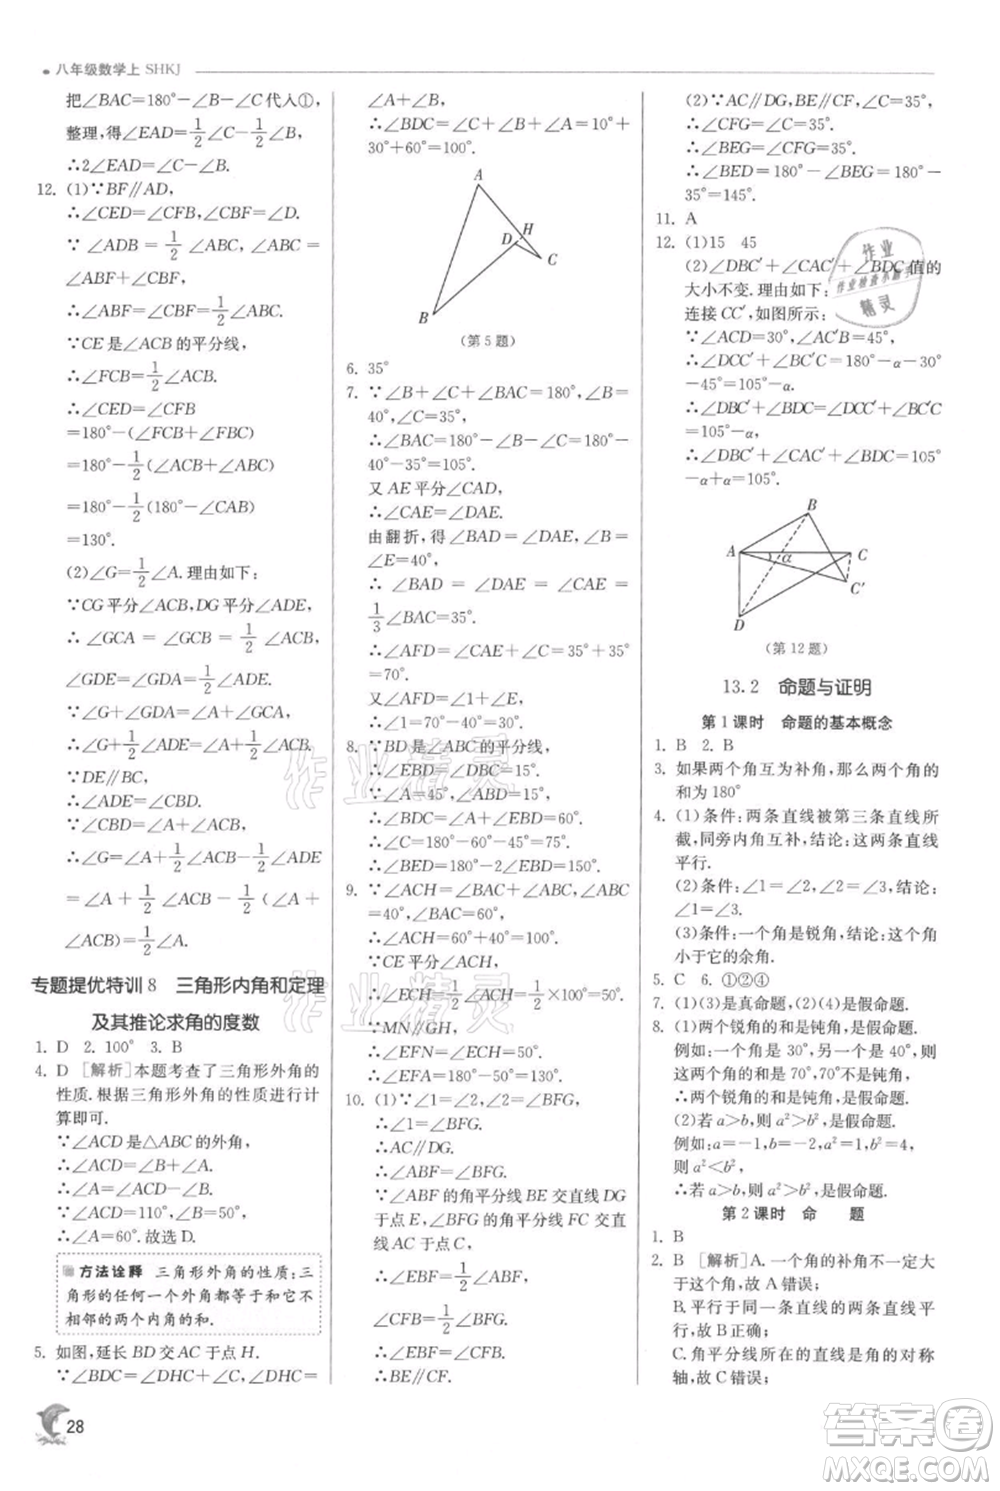 八年级数学上 SHKJ
把∠BAC=180°-∠B-∠C代入①,
整理,得∠EAD=1/2∠C-1/2∠B,
∴2∠EAD=∠C-∠B.
12. (1)∵BF∥AD,
∴∠CED=∠CFB,∠CBF=∠D.
∵∠ADB=1/2∠ABC,∴∠CBF=1/2
∠ABF,
∴∠ABF+1/2∠ABC=180°.
∵CE是∠ACB的平分线,
∴∠FCB=1/2∠ACB,
∴∠CED=∠CFB
=180°-1/2(∠ACB+∠ABC)
=180°-1/2(180°-∠CAB)
=130°.
(2)∠G=1/2∠A.理由如下:
∵CG平分∠ACB,DG平分∠ADE,
∴∠GCA=∠GCB=1/2∠ACB,
∠GDE=1/2∠ADE.
∵∠A+1/2∠ADE=∠G+∠GCA,
∴1/2∠ADE=∠G+1/2∠ACB-∠A.
∵DE∥BC,
∴∠ADE=∠CBD.
∵∠CBD=∠A+∠ACB,
∴∠G=∠A+1/2∠ADE-1/2∠ACB
=∠A+1/2∠CBD-1/2∠ACB=∠A+
1/2(∠A+∠ACB)-1/2∠ACB-(∠A+
∠ACB)=1/2∠A.
专题提优特训8 三角形内角和定理
及其推论求角的度数
1. D 2. 100° 3. B
4. D [解析]本题考查了三角形外角的
性质.根据三角形外角的性质进行计
算即可.
∵∠ACD是△ABC的外角,
∴∠ACD=∠B+∠A.
∵∠ACD=110°,∠B=50°,
∴∠A=60°.故选D.
方法诠释 三角形外角的性质:三
角形的任何一个外角都等于和它不
相邻的两个内角的和.
5. 如图,延长BD交AC于点H.
∵∠BDC=∠DHC+∠C,∠DHC=
28
∠A+∠B,
∴∠BDC=∠C+∠B+∠A=10°+
30°+60°=100°.
A
H
D
C
B
(第5题)
6. 35°
7. ∵∠B+∠C+∠BAC=180°,∠B=
40°,∠C=35°,
∴∠BAC=180°-∠B-∠C=180°-
40°-35°=105°.
又AE平分∠CAD,
∴∠CAE=∠DAE.
由翻折,得∠BAD=∠DAE,∠B=
∠E=40°,
∴∠BAD=∠DAE=∠CAE=
1/3∠BAC=35°.
∴∠AFD=∠C+∠CAE=35°+35°
=70°.
又∠AFD=∠1+∠E,
∴∠1=70°-40°=30°.
8. ∵BD是∠ABC的平分线,
∴∠EBD=∠CBD.
∵∠A=45°,∠BDC=60°,
∴∠BDC=∠A+∠EBD=60°.
∴∠C=180°-60°-45°=75°.
∴∠BED=180°-2∠EBD=150°.
9. ∵∠ACH=∠BAC+∠ABC,∠ABC=
40°,∠BAC=60°,
∴∠ACH=60°+40°=100°.
∵CE平分∠ACH,
∴∠ECH=1/2∠ACH=1/2×100°=50°.
∵MN∥GH,
∴∠EFA=∠ECH=50°.
∴∠EFA=50°.
10. (1)∵∠1=∠2,∠2=∠BFG,
∴∠1=∠BFG.
∴AC∥DG.
∴∠ABF=∠BFG.
∵∠ABF的角平分线BE交直线DG
于点E,∠BFG的角平分线FC交直线
AC于点C,
∴∠EBF=1/2∠ABF,
∠CFB=1/2∠BFG.
∴∠EBF=∠CFB.
∴BE∥CF.
(2)∵AC∥DG,BE∥CF,∠C=35°,
∴∠CFG=∠C=35°.
∴∠BEG=∠CFG=35°.
∴∠BED=180°-∠BEG=180°-
35°=145°.
11. A
12. (1)15 45
(2)∠DBC′+∠CAC′+∠BDC值的
大小不变.理由如下:
连接CC′,如图所示:
∵∠ACD=30°,∠AC′B=45°,
∴∠DCC′+∠BC′C=180°-α-30°
-45°=105°-α.
∴∠DBC′+∠BDC=∠DCC′+∠BC′C
=105°-α.
∴∠DBC′+∠CAC′+∠BDC=105°
-α+α=105°.
B
A
α
C
C′
D
(第12题)
13.2 命题与证明
第1课时 命题的基本概念
1. B 2. B
3. 如果两个角互为补角,那么两个角的
和为180°
4. (1)条件:两条直线被第三条直线所
截,同旁内角互补,结论:这两条直线
平行.
(2)条件:∠1=∠2,∠2=∠3,结论:
∠1=∠3.
(3)条件:一个角是锐角,结论:这个角
小于它的余角.
5. C 6. ①②④
7. (1)(2)(3)是真命题,(4)是假命题.
8. (1)两个锐角的和是钝角,是假命题.
例如:一个角是30°,另一个角是40°,
则两角的和是70°,70°不是钝角,
∴两个锐角的和是钝角是假命题.
(2)若a>b,则a²>b²,是假命题.
例如:a=-1,b=-2,a²=1,b²=4,
则a²<b²,
∴若a>b,则a²>b²,是假命题.
第2课时 命 题
1. B
2. B [解析]A.一个角的补角不一定大
于这个角,故A错误;
B.平行于同一条直线的两条直线平
行,故B正确;
C.角平分线所在的直线是角的对称
轴,故C错误;
作业
作业检查小助手
精灵
作业精灵
作业精灵
答案卷
MXQE.COM